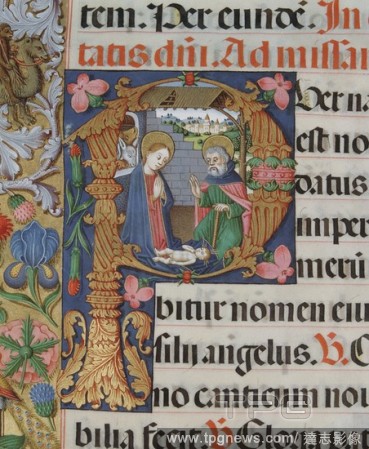 tem. Per eundē. In
tatis dñi. Ad missā
Puer na
est no
datus
imper
merū
bitur nomen eiu
filij angelus. V. C
no canticum nou
bilia fecit
TPG
www.tpgnews.com/達志影像